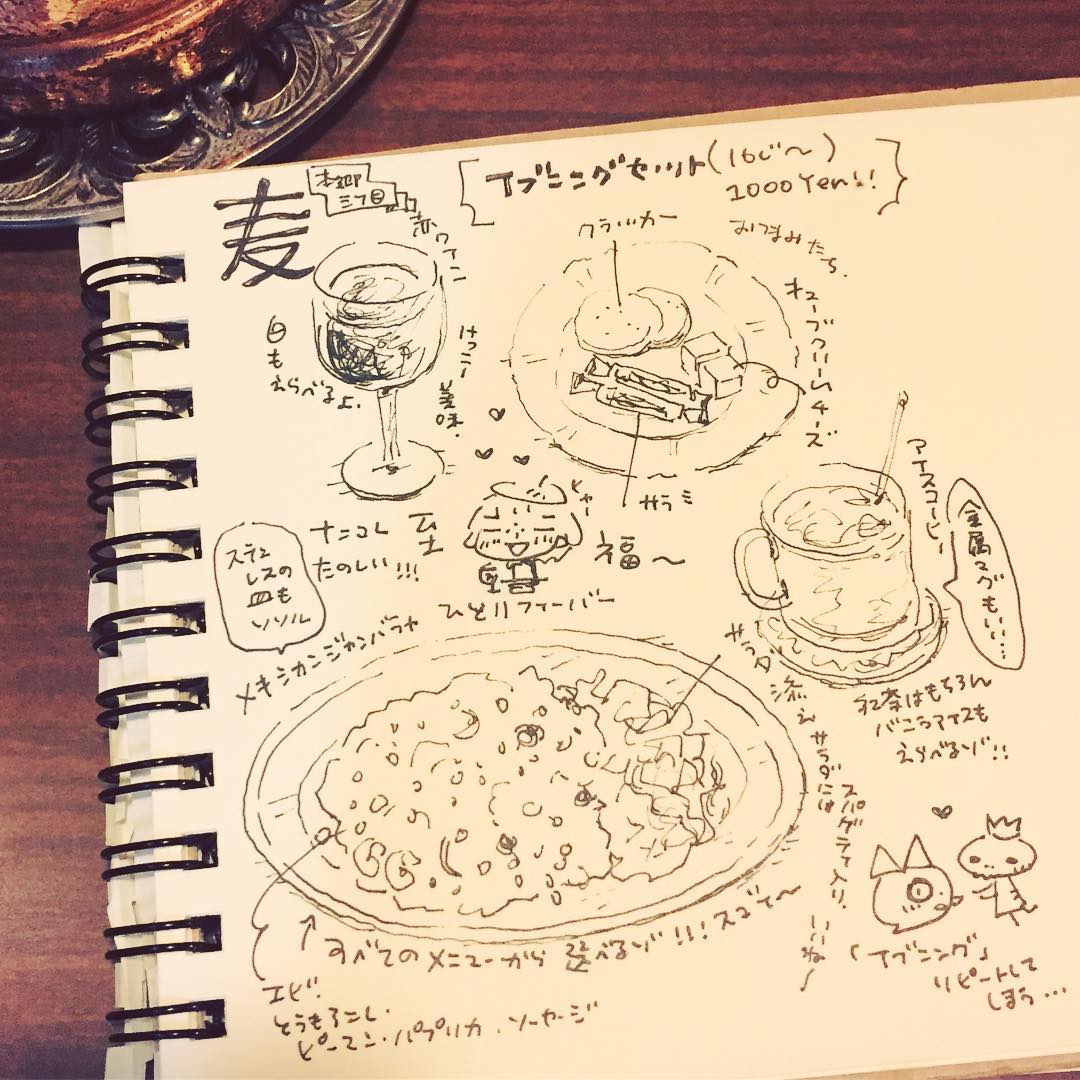 麦
本郷
三丁目
イブニングセット(16じ〜)
1000Yen!!
赤ワイン
白も
えらべるよ.
けっこー
美味.
クラッカー
おつまみたち.
キューブクリームチーズ
サラミ
ヒャー
至
福〜
ひとりフィーバー
ナニコレ
たのしい!!!
ステン
レスの
皿も
ソソル
アイスコーヒー
金属
マグもいい…
紅茶はもちろん
バニラアイスも
えらべるゾ!!
メキシカンジャンバラヤ
サラダ添え
サラダには
スパゲティ入り.
いいね〜
↑すべてのメニューから選べるゾ!!!スゴイ〜
エビ.
とうもろこし.
ピーマン・パプリカ.ソーセージ
「イブニング」
リピートして
しまう…